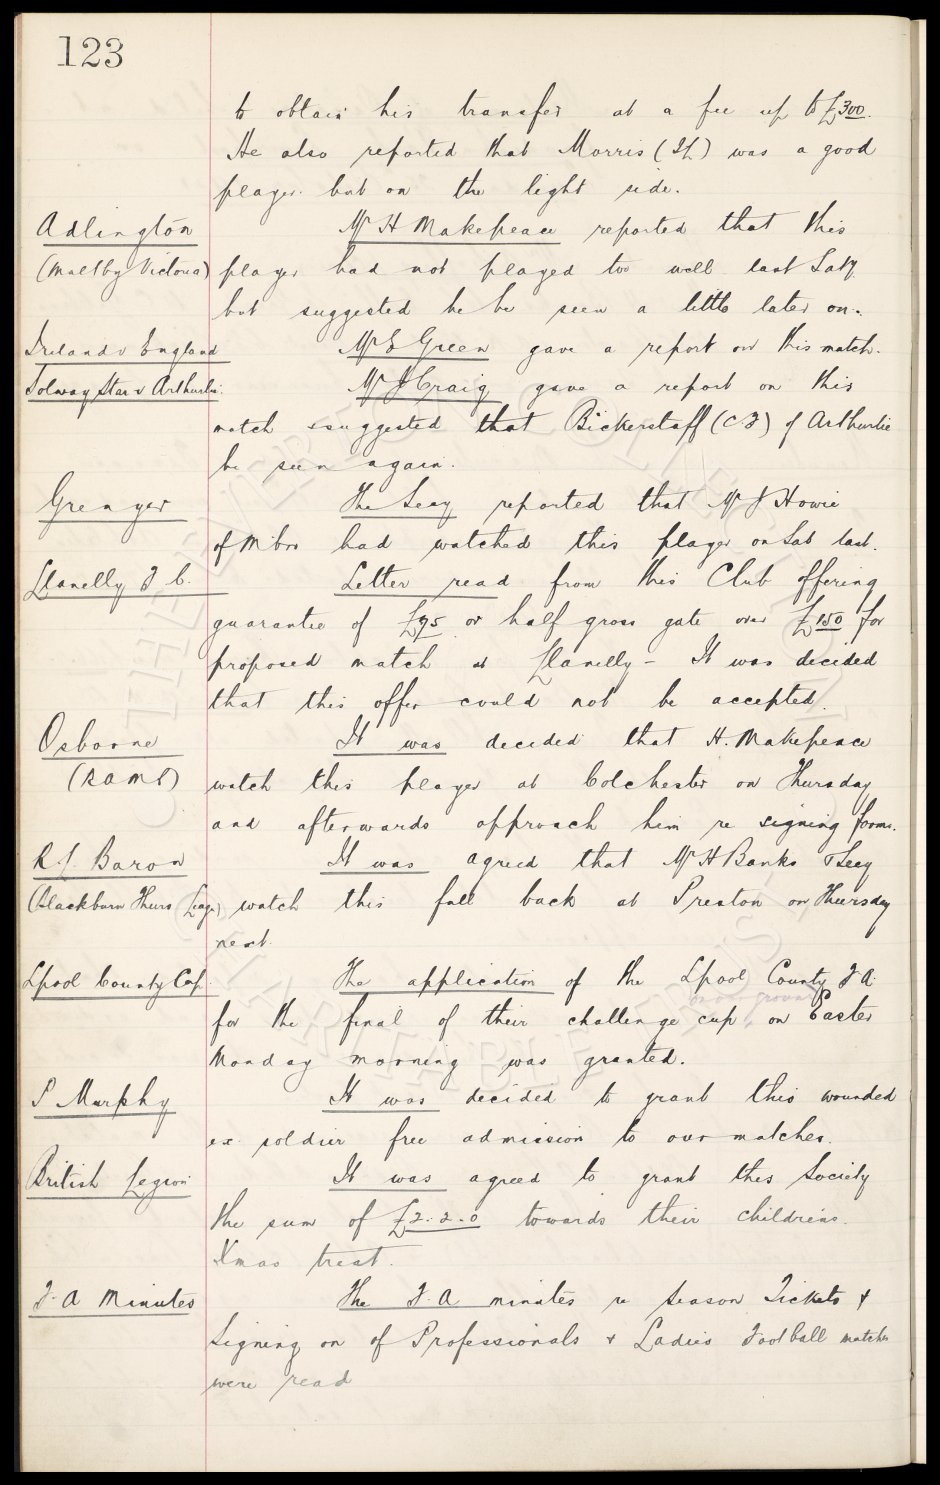 123
to obtain his transfer at a fee up to £300.
He also reported that Morris (IL) was a good
player but on the light side.
Adlington
Mr H Makepeace reported that this
(Maltby Victoria)
player had not played too well last Saty
but suggested he be seen a little later on.
Ireland v England
Mr E Green gave a report on this match.
Solway Star v Arthurlie.
Mr J Craig gave a report on this
match & suggested that Bickerstaff (C.F) of Arthurlie
be seen again.
Grenyer
The Secy reported that Mr J Howie
of M'bro had watched this player on Sat last.
Llanelly F C.
Letter read from this Club offering
guarantee of £75 or half gross gate over £150 for
proposed match at Llanelly - It was decided
that this offer could not be accepted.
Osborne
It was decided that H. Makepeace
(RAMC)
watch this player at Colchester on Thursday
and afterwards approach him re signing forms.
R J. Baron
It was agreed that Mr H Banks & Secy
(Blackburn Thurs Leage)
watch this full back at Preston on Thursday
next.
Lpool County Cup.
The application of the Lpool County F.A.
for the final of their challenge cup, on our ground on Easter
Monday morning was granted.
P Murphy
It was decided to grant this wounded
ex soldier free admission to our matches.
British Legion
It was agreed to grant this Society
the sum of £2.2.0 towards their childrens
Xmas treat.
F.A Minutes
The F.A minutes re Season Tickets &
Signing on of Professionals & Ladies Football matches
were read
THE EVERTON COLLECTION
CHARITABLE TRUST